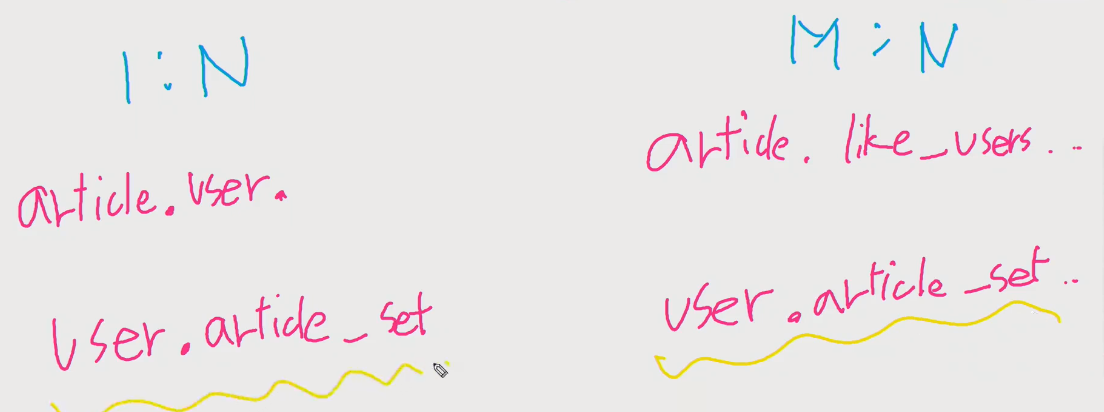 1:N
article.user.
user.article_set
M:N
article.like_users...
user.article_set..